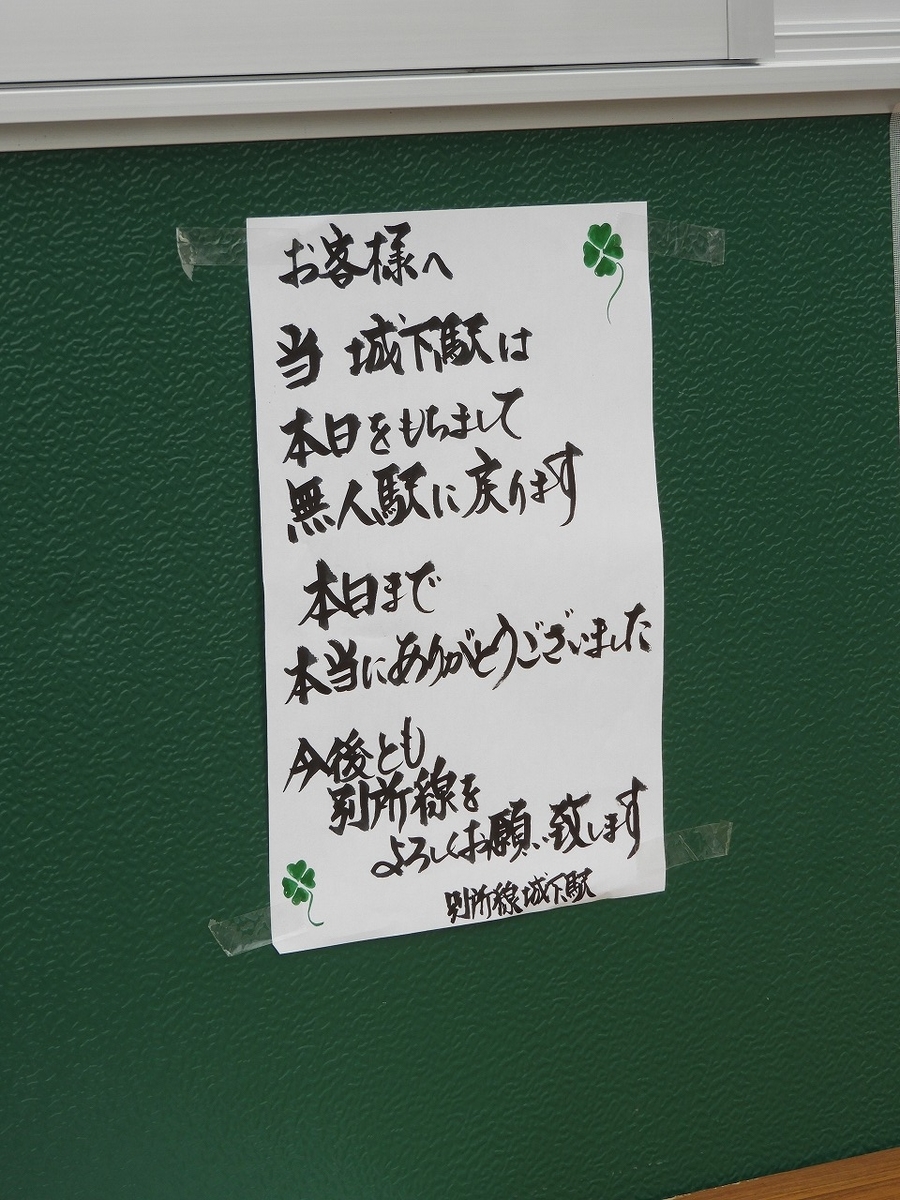 お客様へ
当 城下駅は
本日をもちまして
無人駅に戻ります
本日まで
本当にありがとうございました
今後とも
別所線を
よろしくお願い致します
別所線城下駅